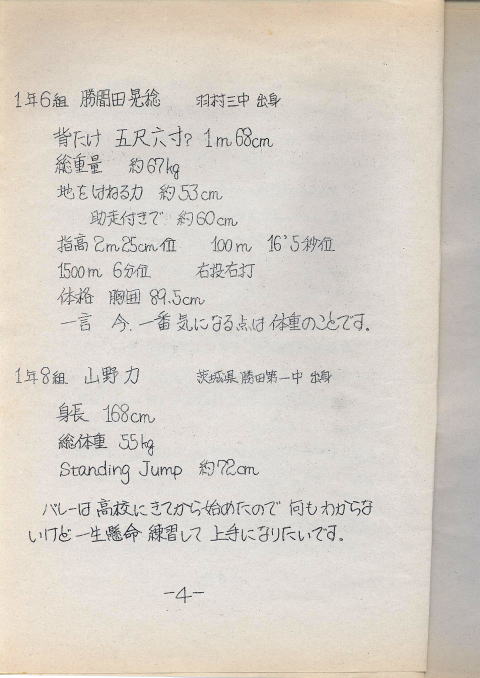 1年6組 勝間田晃稔 羽村三中 出身
背たけ 五尺六寸? 1m68cm
総重量 約67kg
地をはねる力 約53cm
助走付きで 約60cm
指高 2m25cm位 100m 16'5秒位
1500m 6分位 右投右打
体格 胸囲 89.5cm
一言 今、一番気になる点は体重のことです。
1年8組 山野力 茨城県勝田第一中 出身
身長 168cm
総体重 55kg
Standing Jump 約72cm
バレーは高校にきてから始めたので 何もわからな
いけど一生懸命 練習して 上手になりたいです。
-4-